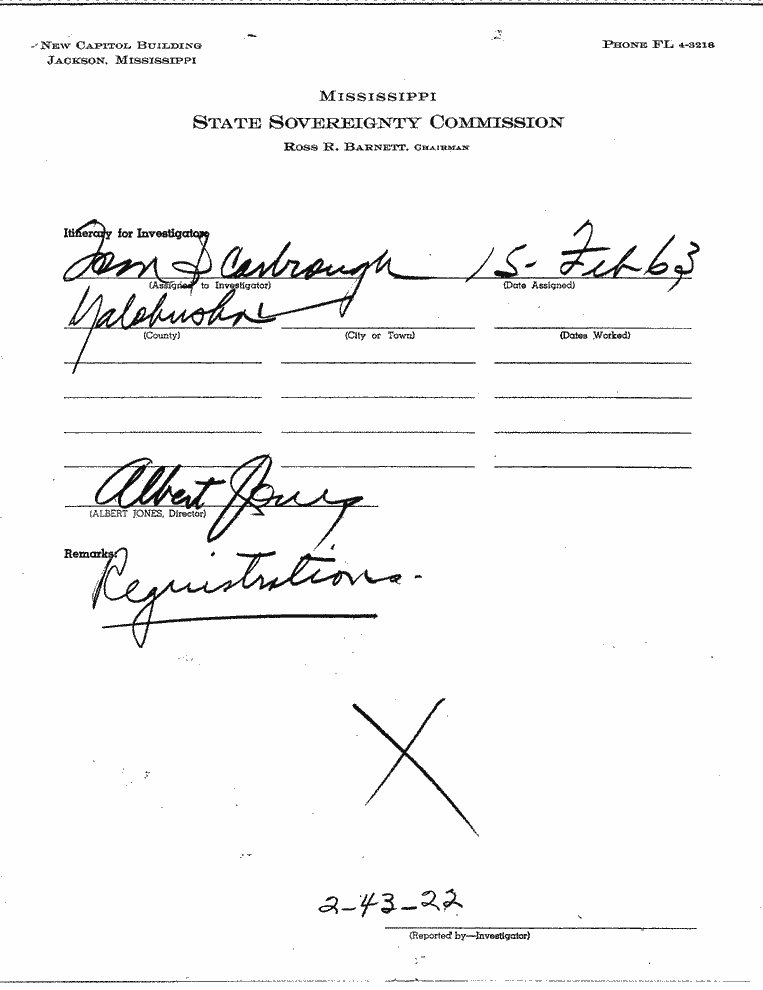 NEW CAPITOL BUILDING
JACKSON, MISSISSIPPI
PHONE FL 4-3218
MISSISSIPPI
STATE SOVEREIGNTY COMMISSION
ROSS R. BARNETT, CHAIRMAN
Itinerary for Investigators
Tom Scarbrough 15-Feb 63
(Assigned to Investigator) (Date Assigned)
Yalobusha
(County) (City or Town) (Dates Worked)
Albert Jones
(ALBERT JONES, Director)
Remarks:
Reguistrations.
X
2-43-22
(Reported by—Investigator)